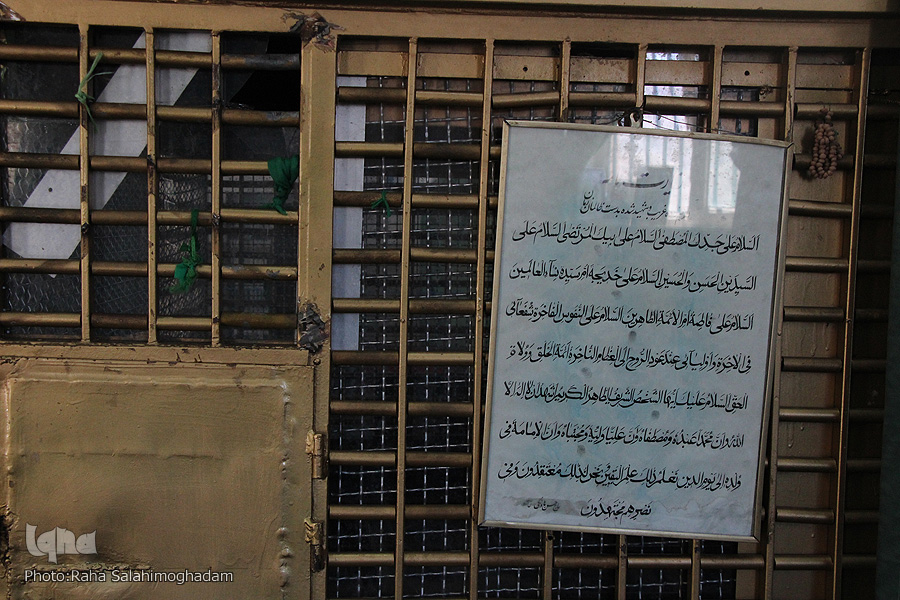 غریب و شهید شده بدست ظالمان زمان
السلام علی جدک المصطفی السلام علی ابیک المرتضی السلام علی
السیدین الحسن والحسین السلام علی خدیجة ام سیدة نساء العالمین
السلام علی فاطمة ام الائمة الطاهرین السلام علی النفوس الفاخرة شفعائی
فی الاخرة و اولیائی عند عود الروح الی العظام الناخرة ائمة الخلق وولاة
الحق السلام علیک ایها الشخص الشریف الطاهر الکریم اشهد ان لا اله الا
الله وان محمدا عبده ومصطفاه وان علیا ولیه ومجتباه وان الامامة فی
ولده الی یوم الدین نعلم ذلک علم الیقین نحن لذلک معتقدون وفی
نصرهم مجتهدون
iqna
Photo:Raha Salahimoghadam